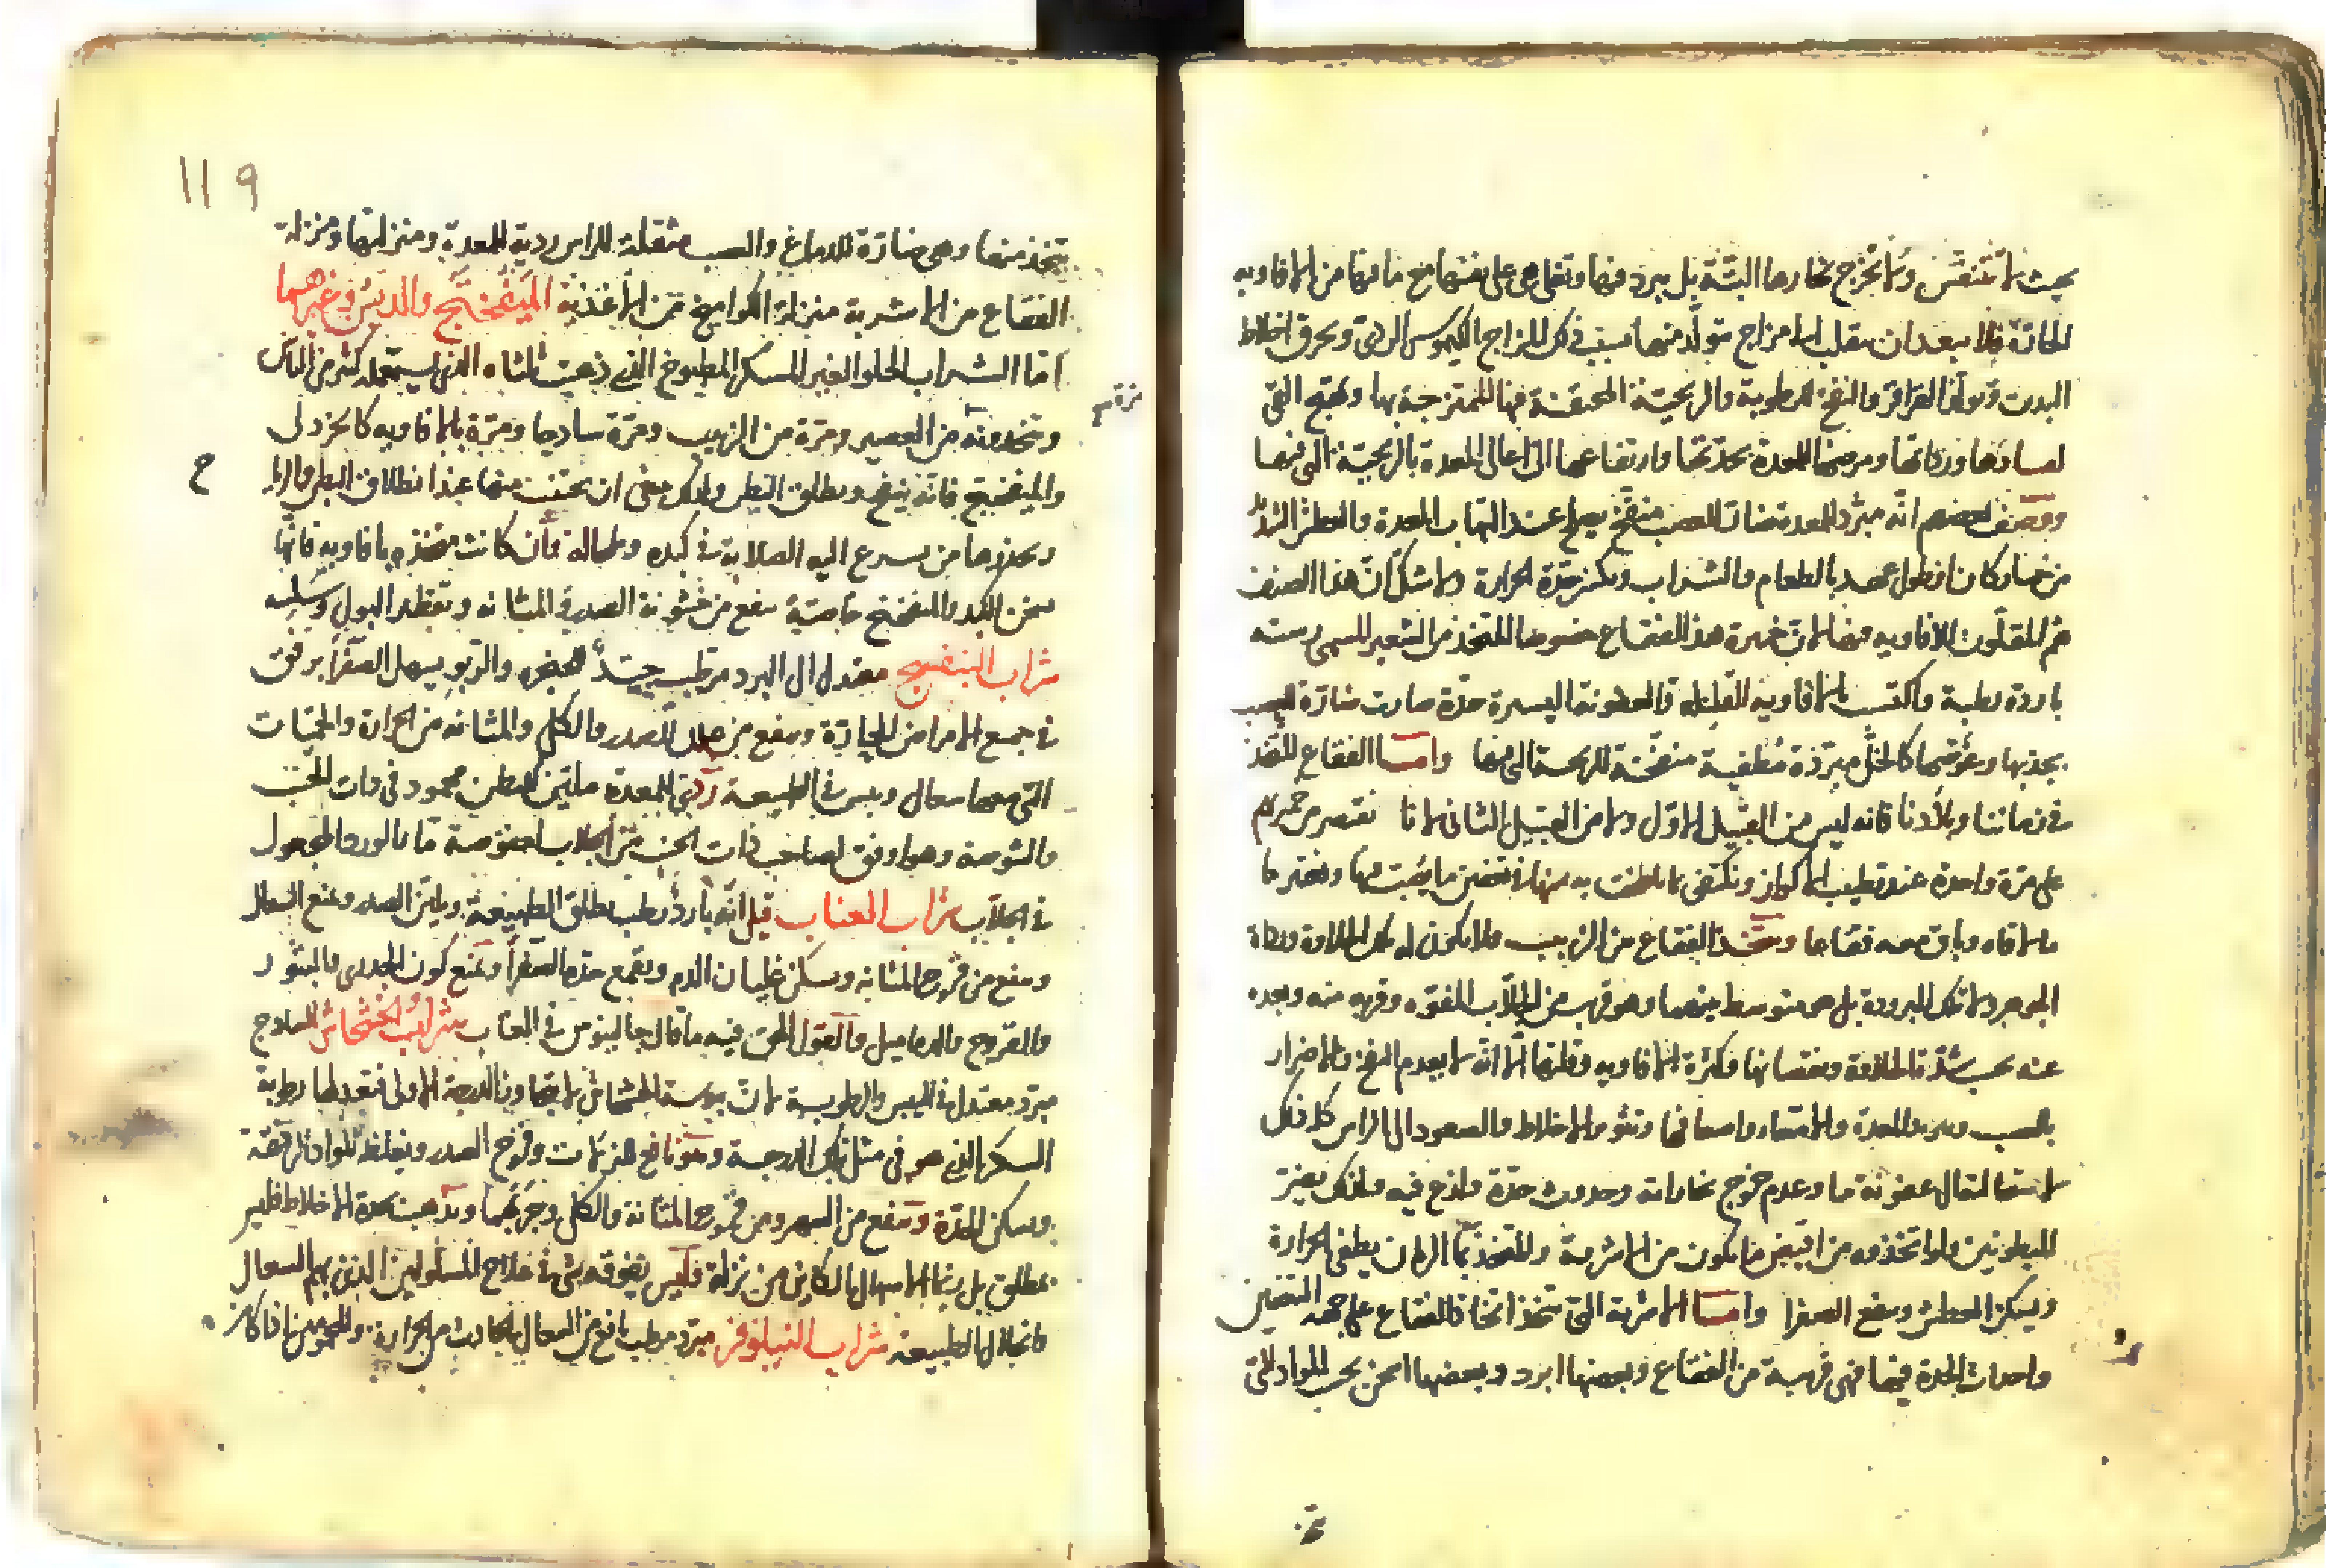 بحيث لا تتنفس ولا يخرج بخارها البتة بل يبرد فيها وتغلي هي على نفسها مع ما فيها من الافاويه
الحادة فلا يبعد ان ينقلب الى مزاج يتولد منها بسبب ذلك المزاج الكيموس الردئ ويحرق اخلاط
البدن وتولد القراقر والنفخ للرطوبة والريحية المحتقنة فيها الممتزجة بها وتهيج القئ
لفسادها وردائتها ومرضها للمعدة بحدتها وارتفاعها الى اعالى المعدة بالريحية التي فيها
ووصف بعضهم انه مبرد للمعدة ضار للعصب منفخ يصلح عند التهاب المعدة والعطش الشديد
من خمار كان او طول عهد بالطعام والشراب ويكسر حدة الحرارة ولا شك ان هذا الصنف
هم المقلون للافاويه فيها لان خميرة هذا الفقاع خصوصا المتخذ من الشعير المسمى
باردة رطبة واكتسب بالافاويه القليلة والعفونة اليسيرة حدة صارت ضارة للعصب
بحدتها كالخل مبردة مطفية منفخة للريحية التي فيها وامـا الفقاع المتخذ
في زماننا وبلادنا فانه ليس من القبيل الاول ولا من القبيل الثاني لانا نقتصر من
على مرة واحدة عند تطييب الكواز ونكتفى بما تلطخت به
ويتخذ الفقاع من الزبيب ولا يكون له تلك الحلاوة
الجوهر ولا تلك البرودة بل هو متوسط بينهما وهو قريب من الجلاب المفوه وقربه منه وبعده
عنه بحسب شدة الحلاوة ونقصانها وكثرة الافاويه وقلتها الا انه لا يعدم النفخ والاضرار
بالعصب والمعدة والامعاء والاخلاط والصعود الى الراس كل ذلك
لاستعماله عفونة ما وعدم خروج بخاراته وحدوث حدة ولذع فيه ولذلك يضر
المبطونين ولو اتخذوه من اقبض ما يكون من الاشربة والمتخذ بماء الرمان يطفى الحرارة
ويسكن العطش ويقمع الصفرا وامـا الاشربة التي تتخذ اتخاذ الفقاع على جهة التعفين
واحداث الحدة فيها فهى قريبة من الفقاع وبعضها ابرد وبعضها اسخن بحسب المواد التى
١١٩
يتخذ منها وهى ضارة للدماغ والعصب مثقلة للراس ردية للمعدة ومنزلتها ومنزلة
الفقاع من الاشربة منزلة الكواميخ من الاغذية الميفختج والدبس وغيرهما
اما الشراب الحلو الغير المسكر المطبوخ الذي ذهب ثلثاه الذي يستعمله كثير من الناس
ويتخذونه من العصير ومرة من الزبيب ومرة ساذجا ومرة بالافاويه كالخردلى
والميفختج فانه ينفخ ويطلق البطن ولذلك ينبغى ان يجتنب منها عند انطلاق البطن
ويحذرها من يسرع اليه الصلابة في كبده وطحاله فان كانت متخذه بافاويه فانها
تسخن الكبد والميفختج خاصية ينفع من خشونة الصدر والمثانة وتقطير البول
شراب البنفسج معتدل الى البرد مرطب جيد والربو يسهل الصفرا برفق
في جميع الامراض الحادة وينفع من علل الصدر والكلى والمثانه من الحرارة والحميات
التى معها سعال ويبس في الطبيعة ردئ للمعدة ملين للبطن محمود فى ذات الجنب
والشوصة وهو اوفق لصاحب ذات الجنب من الجلاب لعفوصة ما بالورد المجعول
في الجلاب شراب العناب قيل انه بارد رطب يطلق الطبيعة ويلين الصدر ويمنع السعال
وينفع من قروح المثانه ويسكن غليان الدم ويقمع حدة الصفرا ويمنع كون الجدرى والبثور
والقروح والدماميل والقول الحق فيه ما قال جالينوس في العناب شراب الخشخاش الساذج
مبرد معتدل في اليبس والرطوبة لان يبوسة الخشخاش في الدرجة الاولى فتعدلها رطوبة
السكر الذي هو فى مثل تلك الدرجة وهو نافع للنزلات وقروح الصدر ويغلظ المواد الرقيقة
ويسكن الحدة وينفع من السهر ومن قروح المثانة والكلى وجربها ويذهب بحدة الاخلاط فليس
بمطلق بل الاسهال الكاين من نزلة فليس يفوقه شئ في علاج المسلولين الذين بهم السعال
وانحلال الطبيعه شراب النيلوفر مبرد مرطب نافع من السعال الحادث من الحرارة وللمحمومين اذا كان